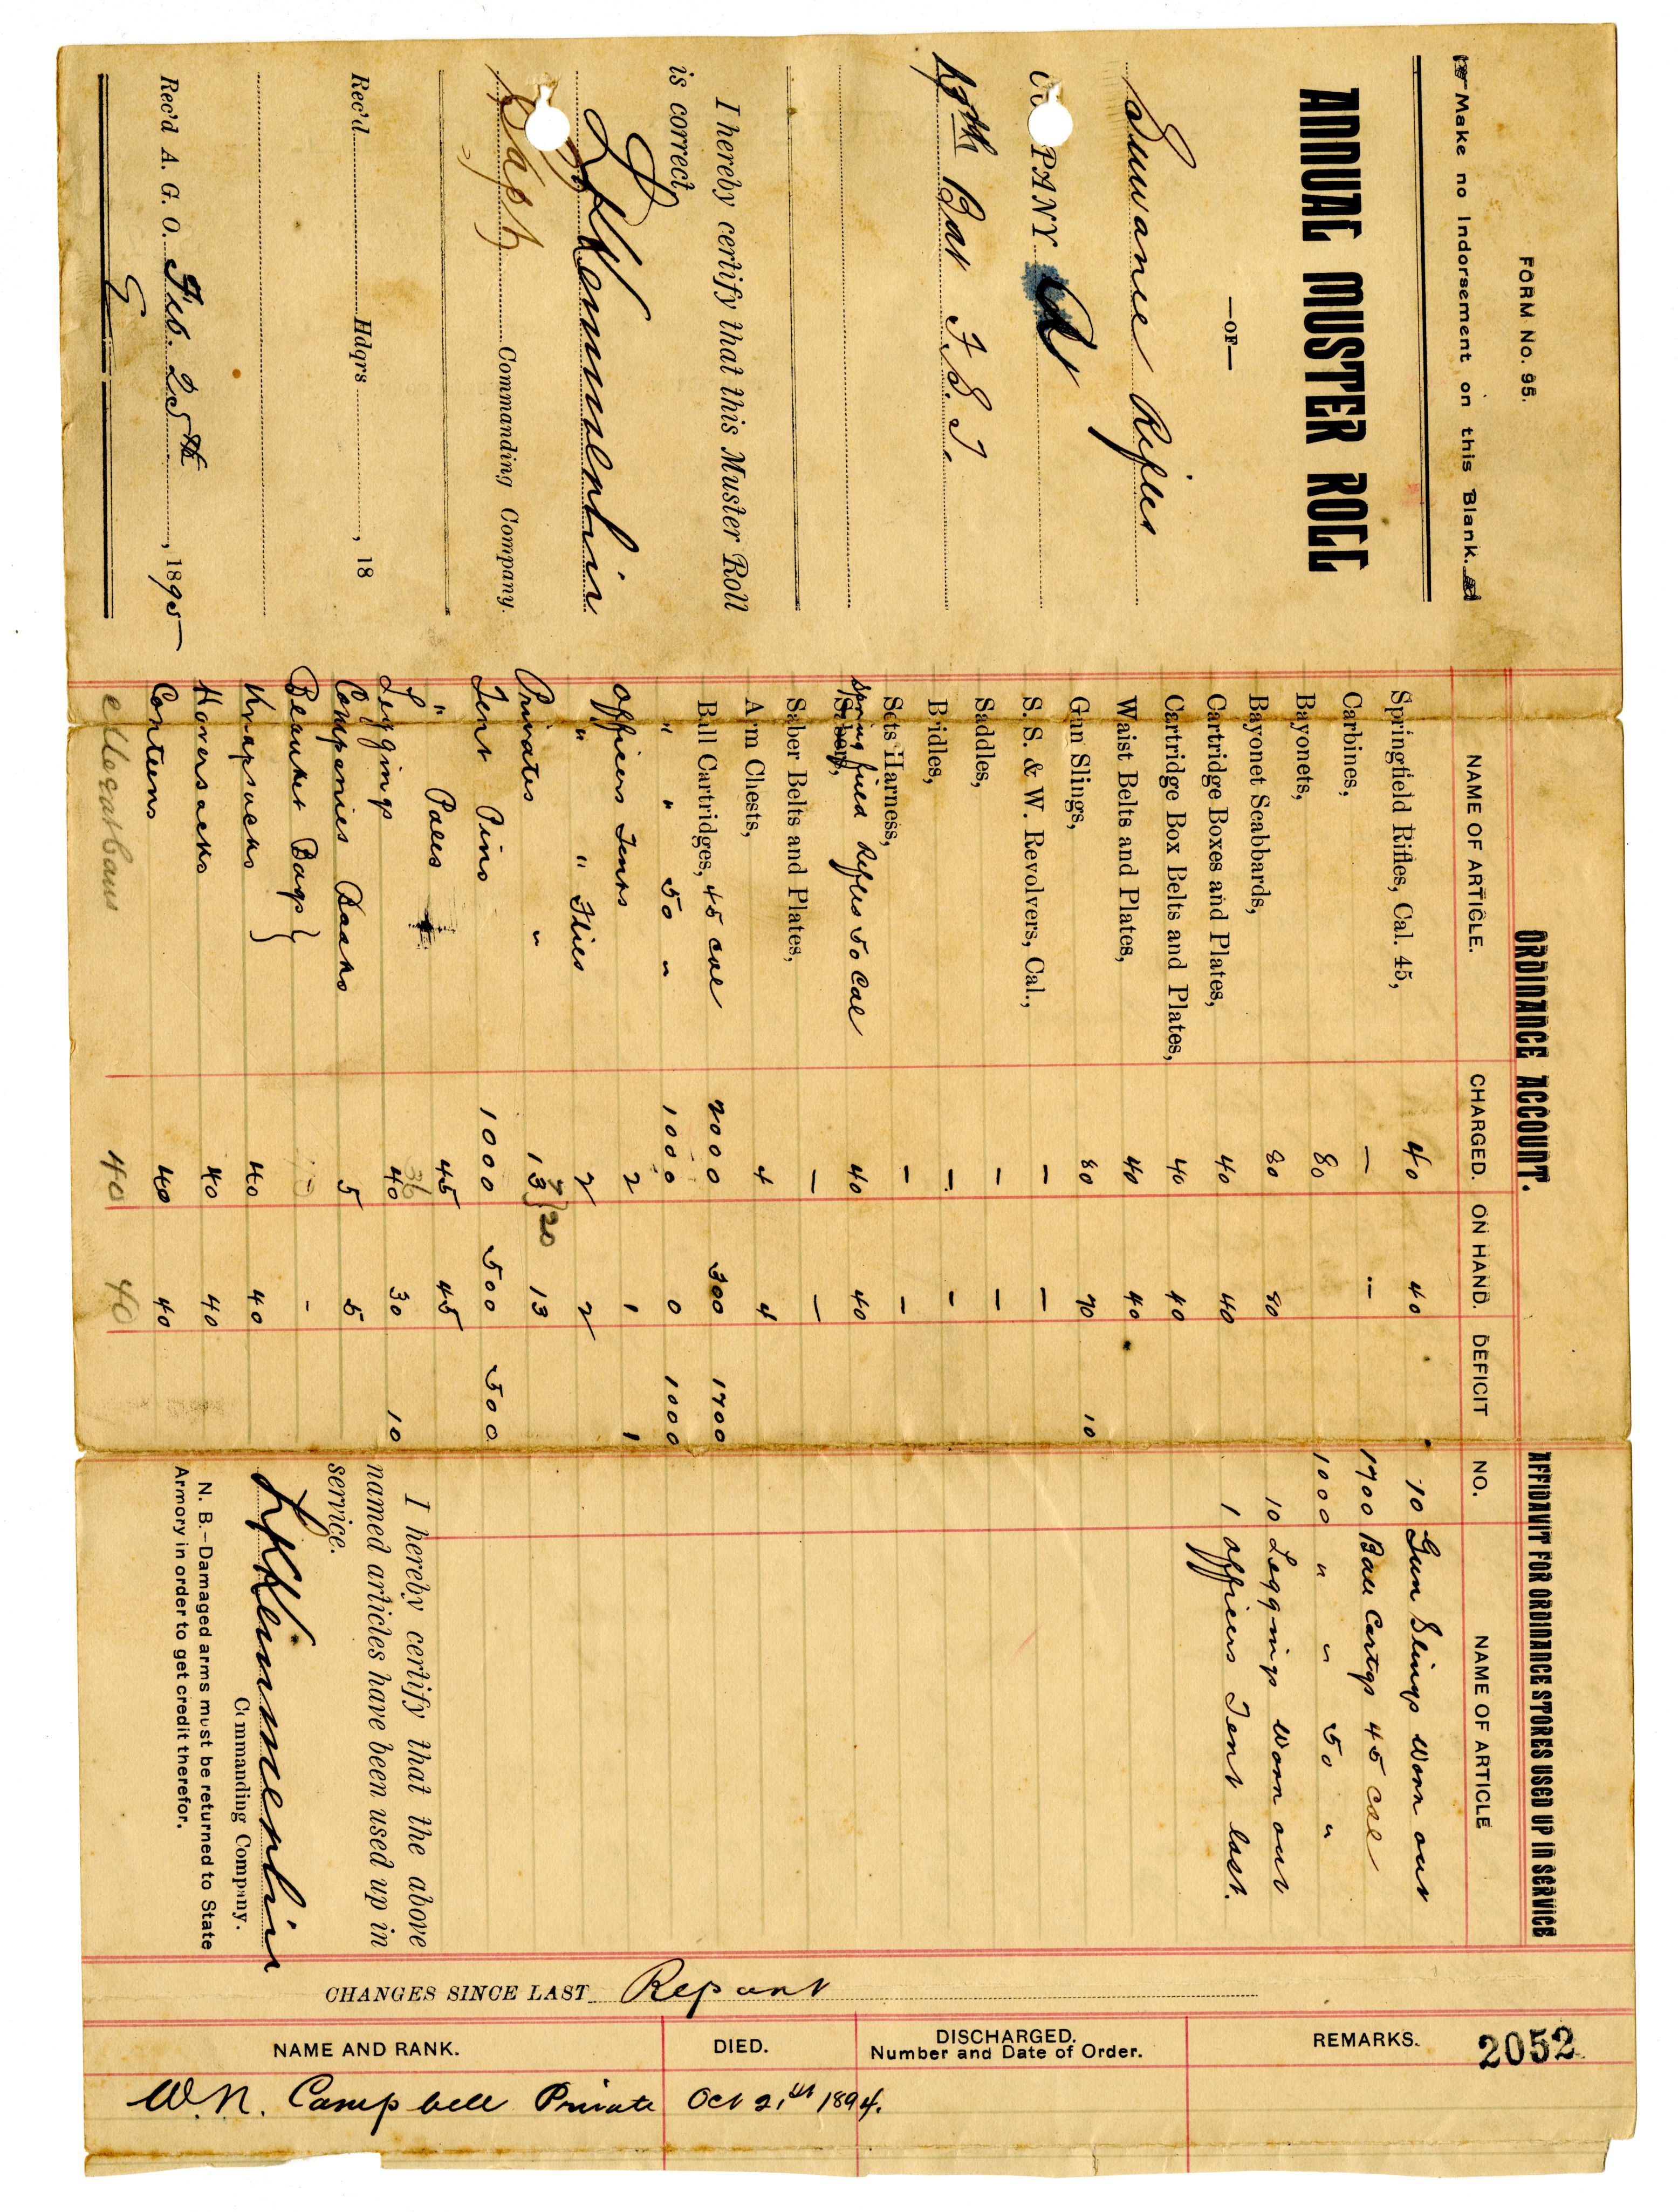 FORM No. 95.
Make no Indorsement on this Blank.
ANNUAL MUSTER ROLL
—OF—
Suwanee Rifles
COMPANY
Bat F. S. T.
I hereby certify that this Muster Roll
is correct,
Capt Commanding Company.
Rec'd Hdqrs , 18
Rec'd A. G. O. Feb. 25th , 1895
ORDINANCE ACCOUNT.
NAME OF ARTICLE. CHARGED. ON HAND. DEFICIT
Springfield Rifles, Cal. 45, 40 40
Carbines, — —
Bayonets, 80
Bayonet Scabbards, 80 80
Cartridge Boxes and Plates, 40 40
Cartridge Box Belts and Plates, 40 40
Waist Belts and Plates, 40 40
Gun Slings, 80 70 10
S. S. & W. Revolvers, Cal., — —
Saddles, — —
Bridles, — —
Sets Harness, — —
Spring field Rifles 50 Cal 40 40
Saber Belts and Plates, — —
Arm Chests, 4 4
Ball Cartridges, 45 cal 2000 300 1700
" " 50 " 1000 0 1000
Officers Tents 2 1 1
" " Flies 2 2
Privates " 13 7 } 20 13
Tent Pins 1000 500 500
" Poles 45 45
Leggings 36 40 30 10
Companies Books 5 5
Beauket Bags } — -
Knapsacks } 40 40
Haversacks 40 40
Conteens 40 40
40 40
AFFIDAVIT FOR ORDINANCE STORES USED UP IN SERVICE
NO. NAME OF ARTICLE
10 Gun Slings worn out
1700 Ball Cartgs 45 cal
1000 " " 50 "
10 Leggings worn out
1 officers Tent lost.
I hereby certify that the above
named articles have been used up in
service.
Commanding Company.
N. B.—Damaged arms must be returned to State
Armory in order to get credit therefor.
CHANGES SINCE LAST Report
NAME AND RANK. DIED. DISCHARGED. Number and Date of Order. REMARKS.
2052
W. N. Campbell Private Oct 21st 1894.